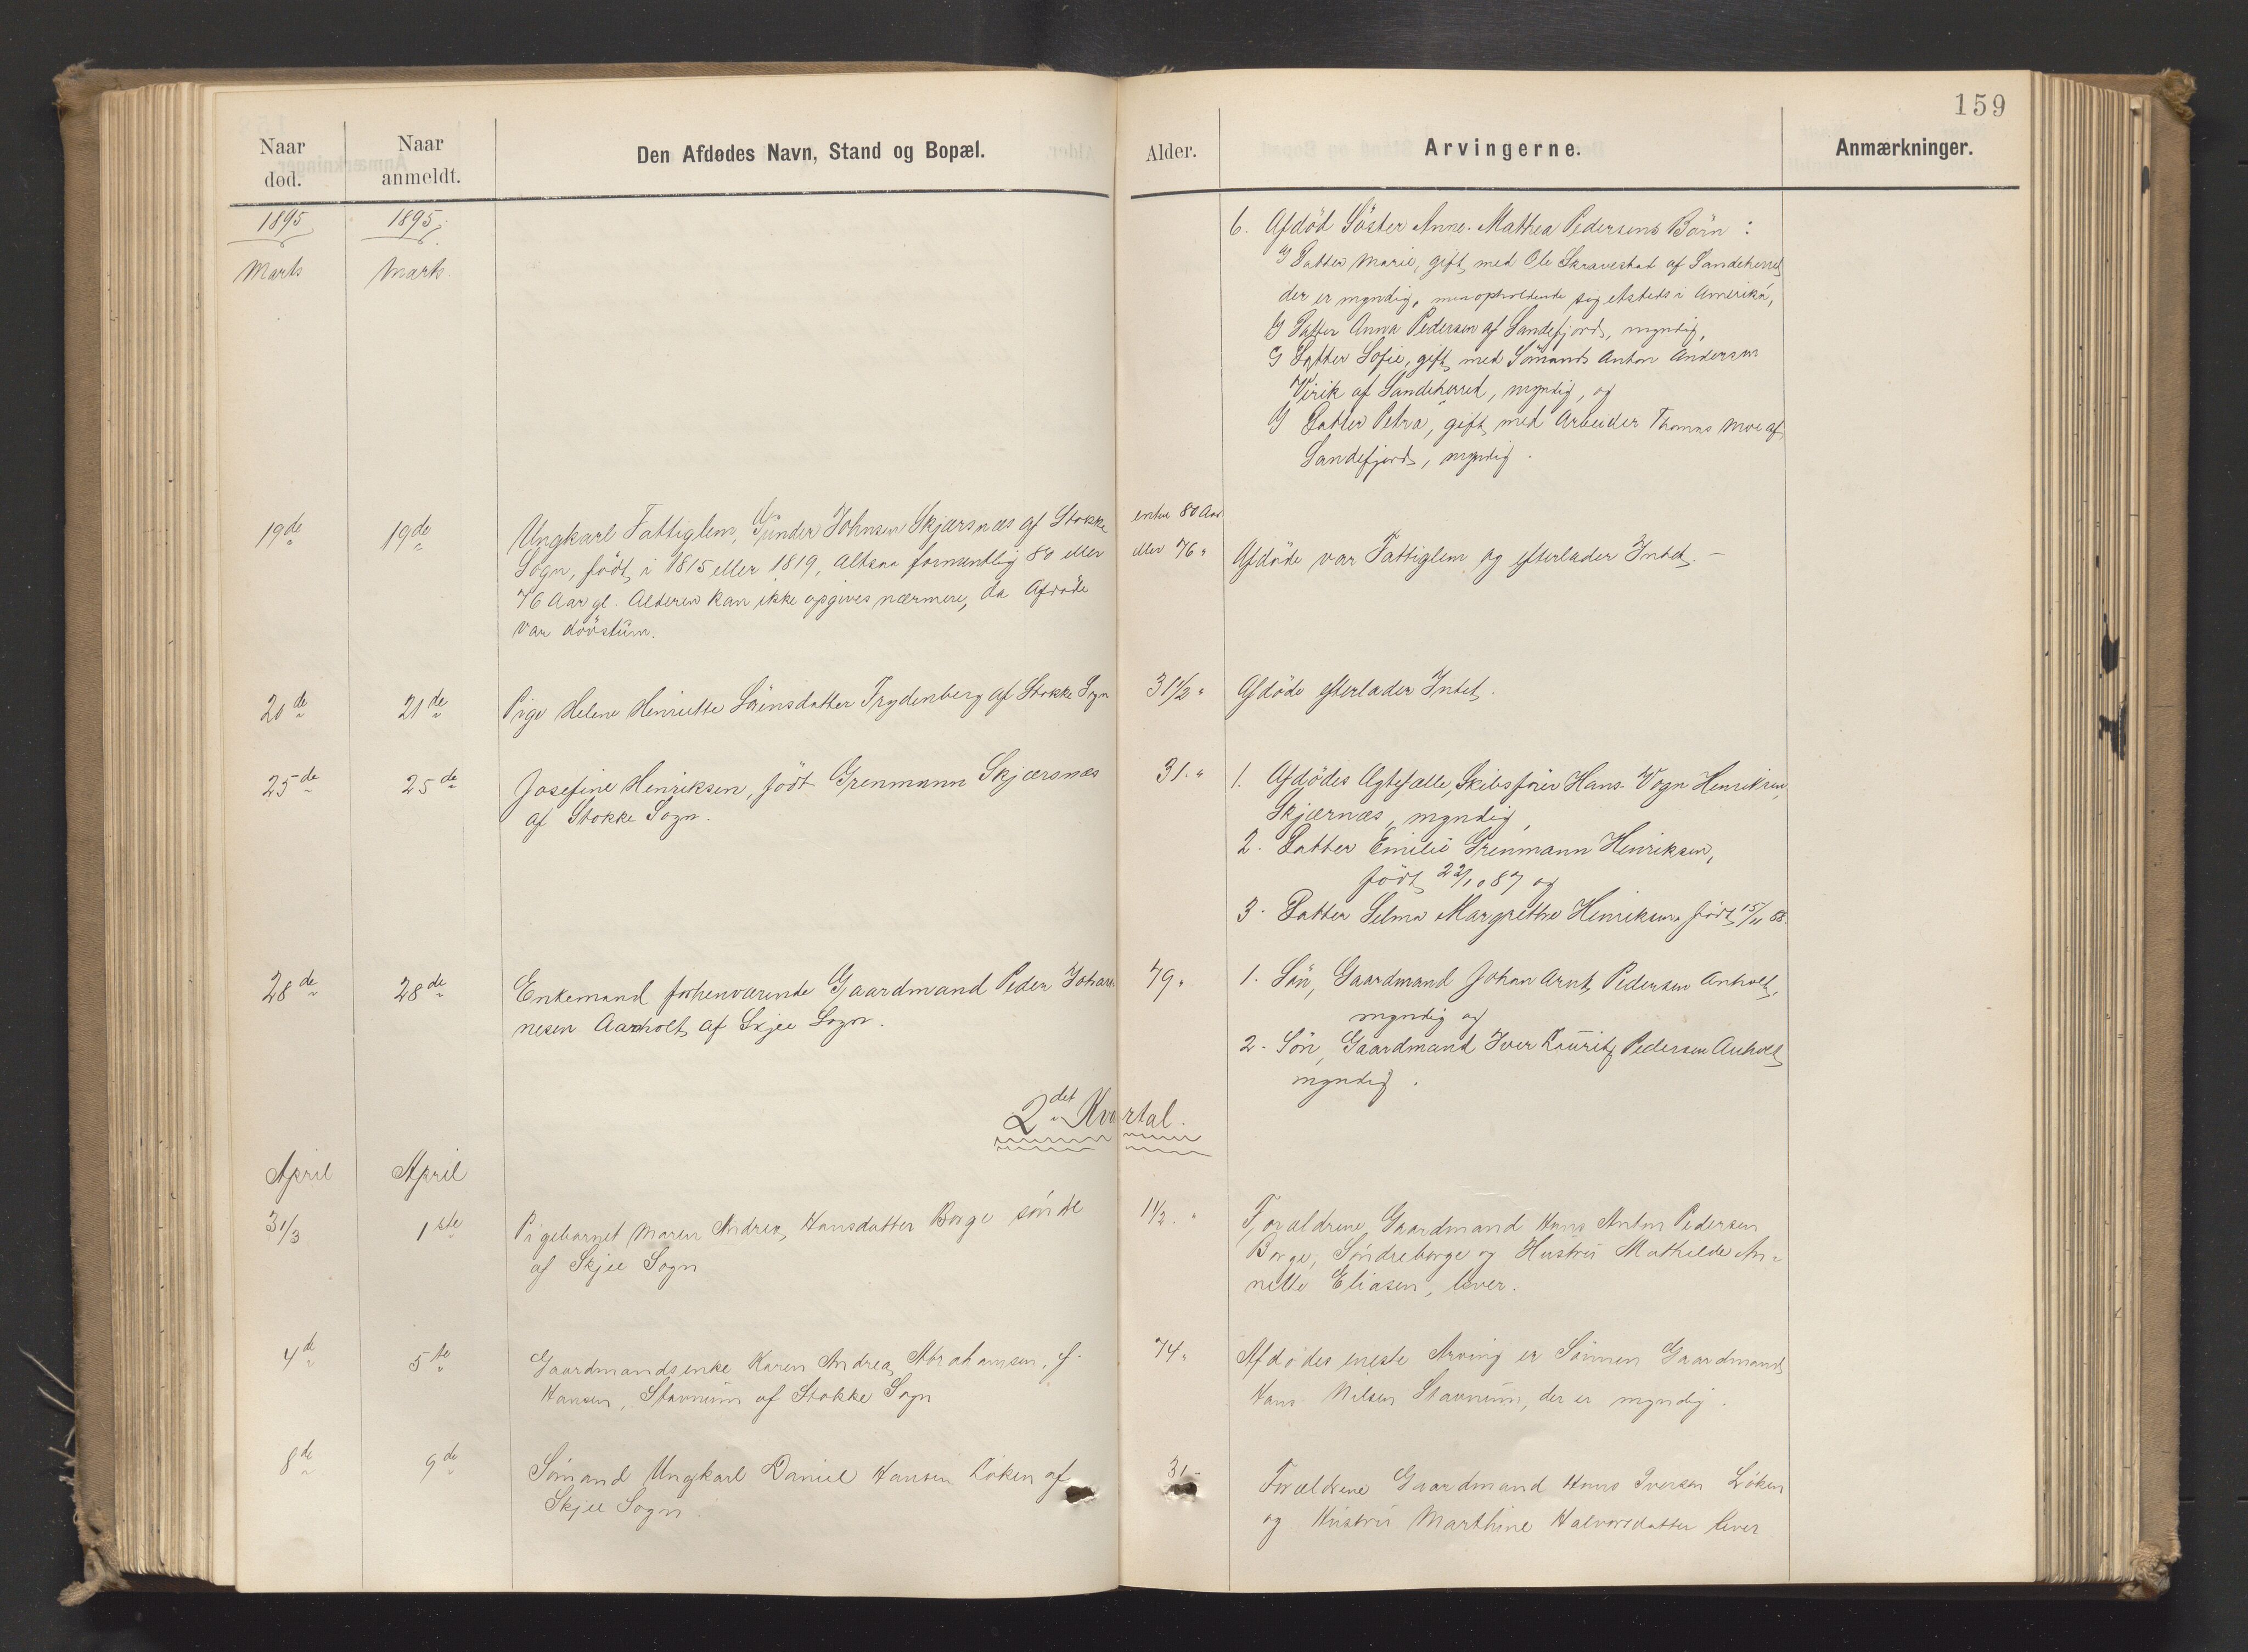 159
Naar død.
Naar anmeldt.
Den Afdødes Navn, Stand og Bopæl.
Alder.
Arvingerne.
Anmærkninger.
1895
1895.
Marts
Marts.
6. Afdöd Söster Anne Mathea Pedersens Börn:
Datter Marie, gift med Ole Skravestad af Sandeherred
der er myndig, men opholdende sig etsteds i Amerika,
Datter Anna Pedersen af Sandefjord, myndig,
Datter Sofie, gift med Sömand Anton Andersen
Virik af Sandeherred, myndig, og
Datter Petra, gift med Arbeider Thomas Moe af
Sandefjord, myndig.
19de
19de
Ungkarl Fattiglem, Gunder Johnsen Skjærsnæs af Stokke
Sogn, födt i 1815 eller 1819, altsaa formentlig 80 eller
76 Aar gl. Alderen kan ikke opgives nærmere, da Afdöde
var dövstum.
enten 80 Aar
eller 76 "
Afdöde var Fattiglem og efterlader Intet. —
20de
21de
Pige Helene Henriette Sörensdatter Frydenberg af Stokke Sogn
31 1/2 "
Afdöde efterlader Intet.
25de
25de
Josefine Henriksen, födt Grenmann Skjærsnæs
af Stokke Sogn.
31. "
1. Afdödes Ægtefælle, Skibsförer Hans Vogn Henriksen,
Skjærnæs, myndig,
2. Datter Emilie Grenmann Henriksen,
födt 22/10 87 og
3. Datter Selma Margrethe Henriksen födt 15/11 88.
28de
28de
Enkemand forhenværende Gaardmand Peder Johan-
nesen Aarholt af Skjee Sogn.
79 "
1. Sön, Gaardmand Johan Arnt Pedersen Anholt,
myndig og
2. Sön, Gaardmand Iver Lauritz Pedersen Anholt
myndig.
2det Kvartal.
April
April
31/3
1ste
Pigebarnet Maren Andrea Hansdatter Borge söndre
af Skjee Sogn
1 1/2. "
Forældrene Gaardmand Hans Anton Pedersen
Borge, Söndreborge og Hustru Mathilde An-
nette Eliasen, lever.
4de
5te
Gaardmandsenke Karen Andrea Abrahamsen, f.
Hansen, Stavnum af Stokke Sogn
74 "
Afdödes eneste Arving er Sönnen Gaardmand
Hans Nilsen Stavnum, der er myndig.
8de
9de
Sömand Ungkarl Daniel Hansen Löken af
Skjee Sogn.
31 -
Forældrene Gaardmand Hans Iversen Löken
og Hustru Marthine Halvorsdatter lever